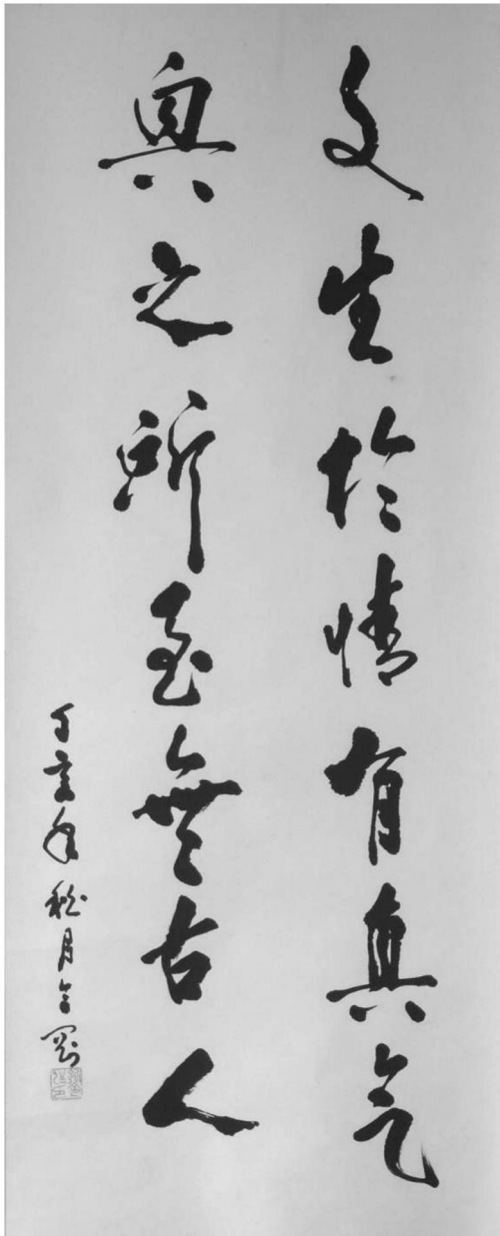 文生於情有真气
興之所至無古人
丁亥年秋月